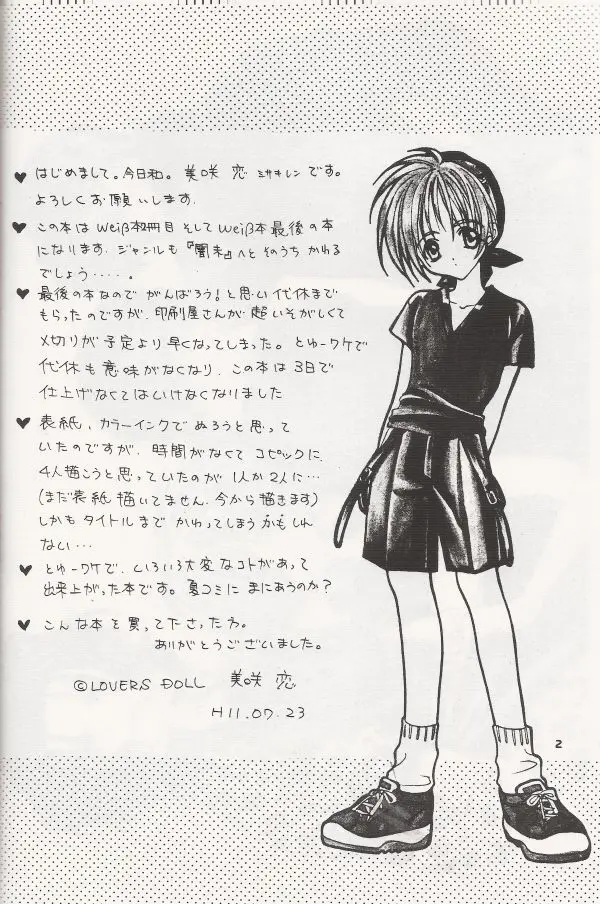 ♥ はじめまして。今日和。 美咲 恋 ミサキレン です。
よろしくお願いします.
♥ この本は Weiβ本2冊目 そして Weiβ本最後の本
になります. ジャンルも『闇末』へと そのうち かわる
でしょう……。
♥ 最後の本なので がんばろう!と思い 代休まで
もらったのですが. 印刷屋さんが 超いそがしくて
〆切りが予定より早くなってしまった。とゆーワケで
代休も意味がなくなり. この本は 3日で
仕上げなくてはいけなくなりました
♥ 表紙、カラーインクで ぬろうと思って
いたのですが、時間がなくて コピックに.
4人描こうと思っていたのが 1人か2人に…
(まだ表紙 描いてません. 今から描きます)
しかも タイトルまで かわってしまう かもしれ
ない…
♥ とゆーワケで、いろいろ大変なコトがあって
出来上がった本です。夏コミに まにあうのか?
♥ こんな本を買って下さった方。
ありがとうございました。
©LOVERS DOLL 美咲 恋
H11.07.23
2